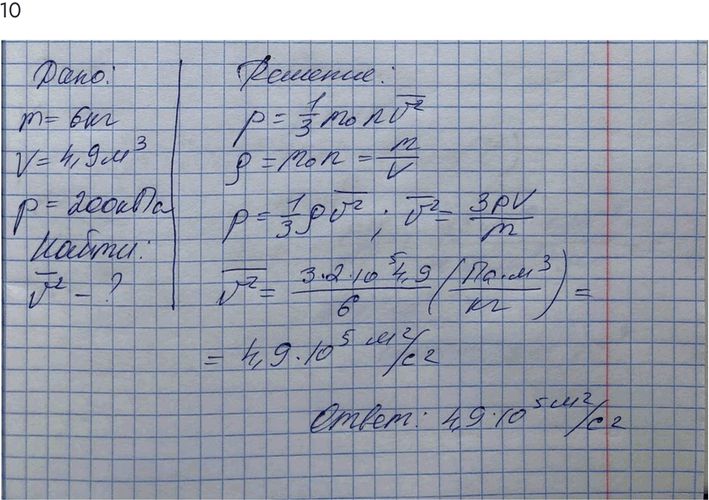 10
Дано:
m = 6 кг
V = 4,9 м³
p = 200 кПа
Найти:
v̅² - ?
Решение:
p = 1/3 m₀ n v̅²
ρ = m₀ n = m/V
p = 1/3 ρ v̅² ; v̅² = 3pV/m
v̅² = 3·2·10⁵ 4,9/6 (Па·м³/кг) =
= 4,9·10⁵ м²/с²
Ответ: 4,9·10⁵ м²/с²